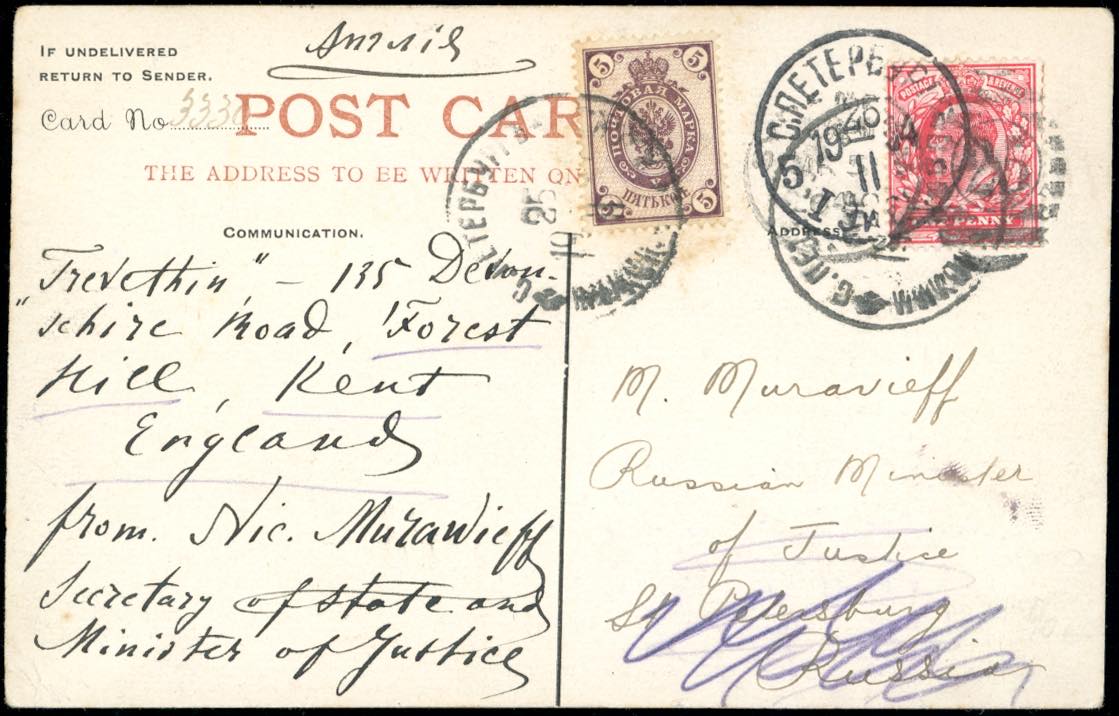 IF UNDELIVERED
RETURN TO SENDER.
Card No
POST CAR
THE ADDRESS TO BE WRITTEN ON
Англія
5 5
ПОЧТОВАЯ МАРКА
ПЯТЬ КОП
5 5
С.ПЕТЕРБУРГ
26
11
POSTAGE & REVENUE
ONE PENNY
25
COMMUNICATION.
"Trevethin", - 135 Devon-
schire Road, Forest
Hill, Kent
England
from. Nic. Murawieff
Secretary of state and
Minister of Justice
ADDRESS
M. Muravieff
Russian Minister
of Justice
St Petersburg
Russia